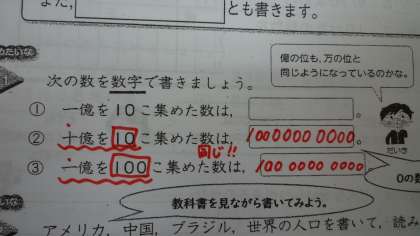 とも書きます。
億の位も、万の位と
同じようになっているのかな。
1 次の数を数字で書きましょう。
① 一億を10こ集めた数は、
。
② 十億を10こ集めた数は、10000000000。
同じ!!
③ 一億を100こ集めた数は、10000000000
だいき
0の数
教科書を見ながら書いてみよう。
アメリカ，中国，ブラジル，世界の人口を書いて，読み